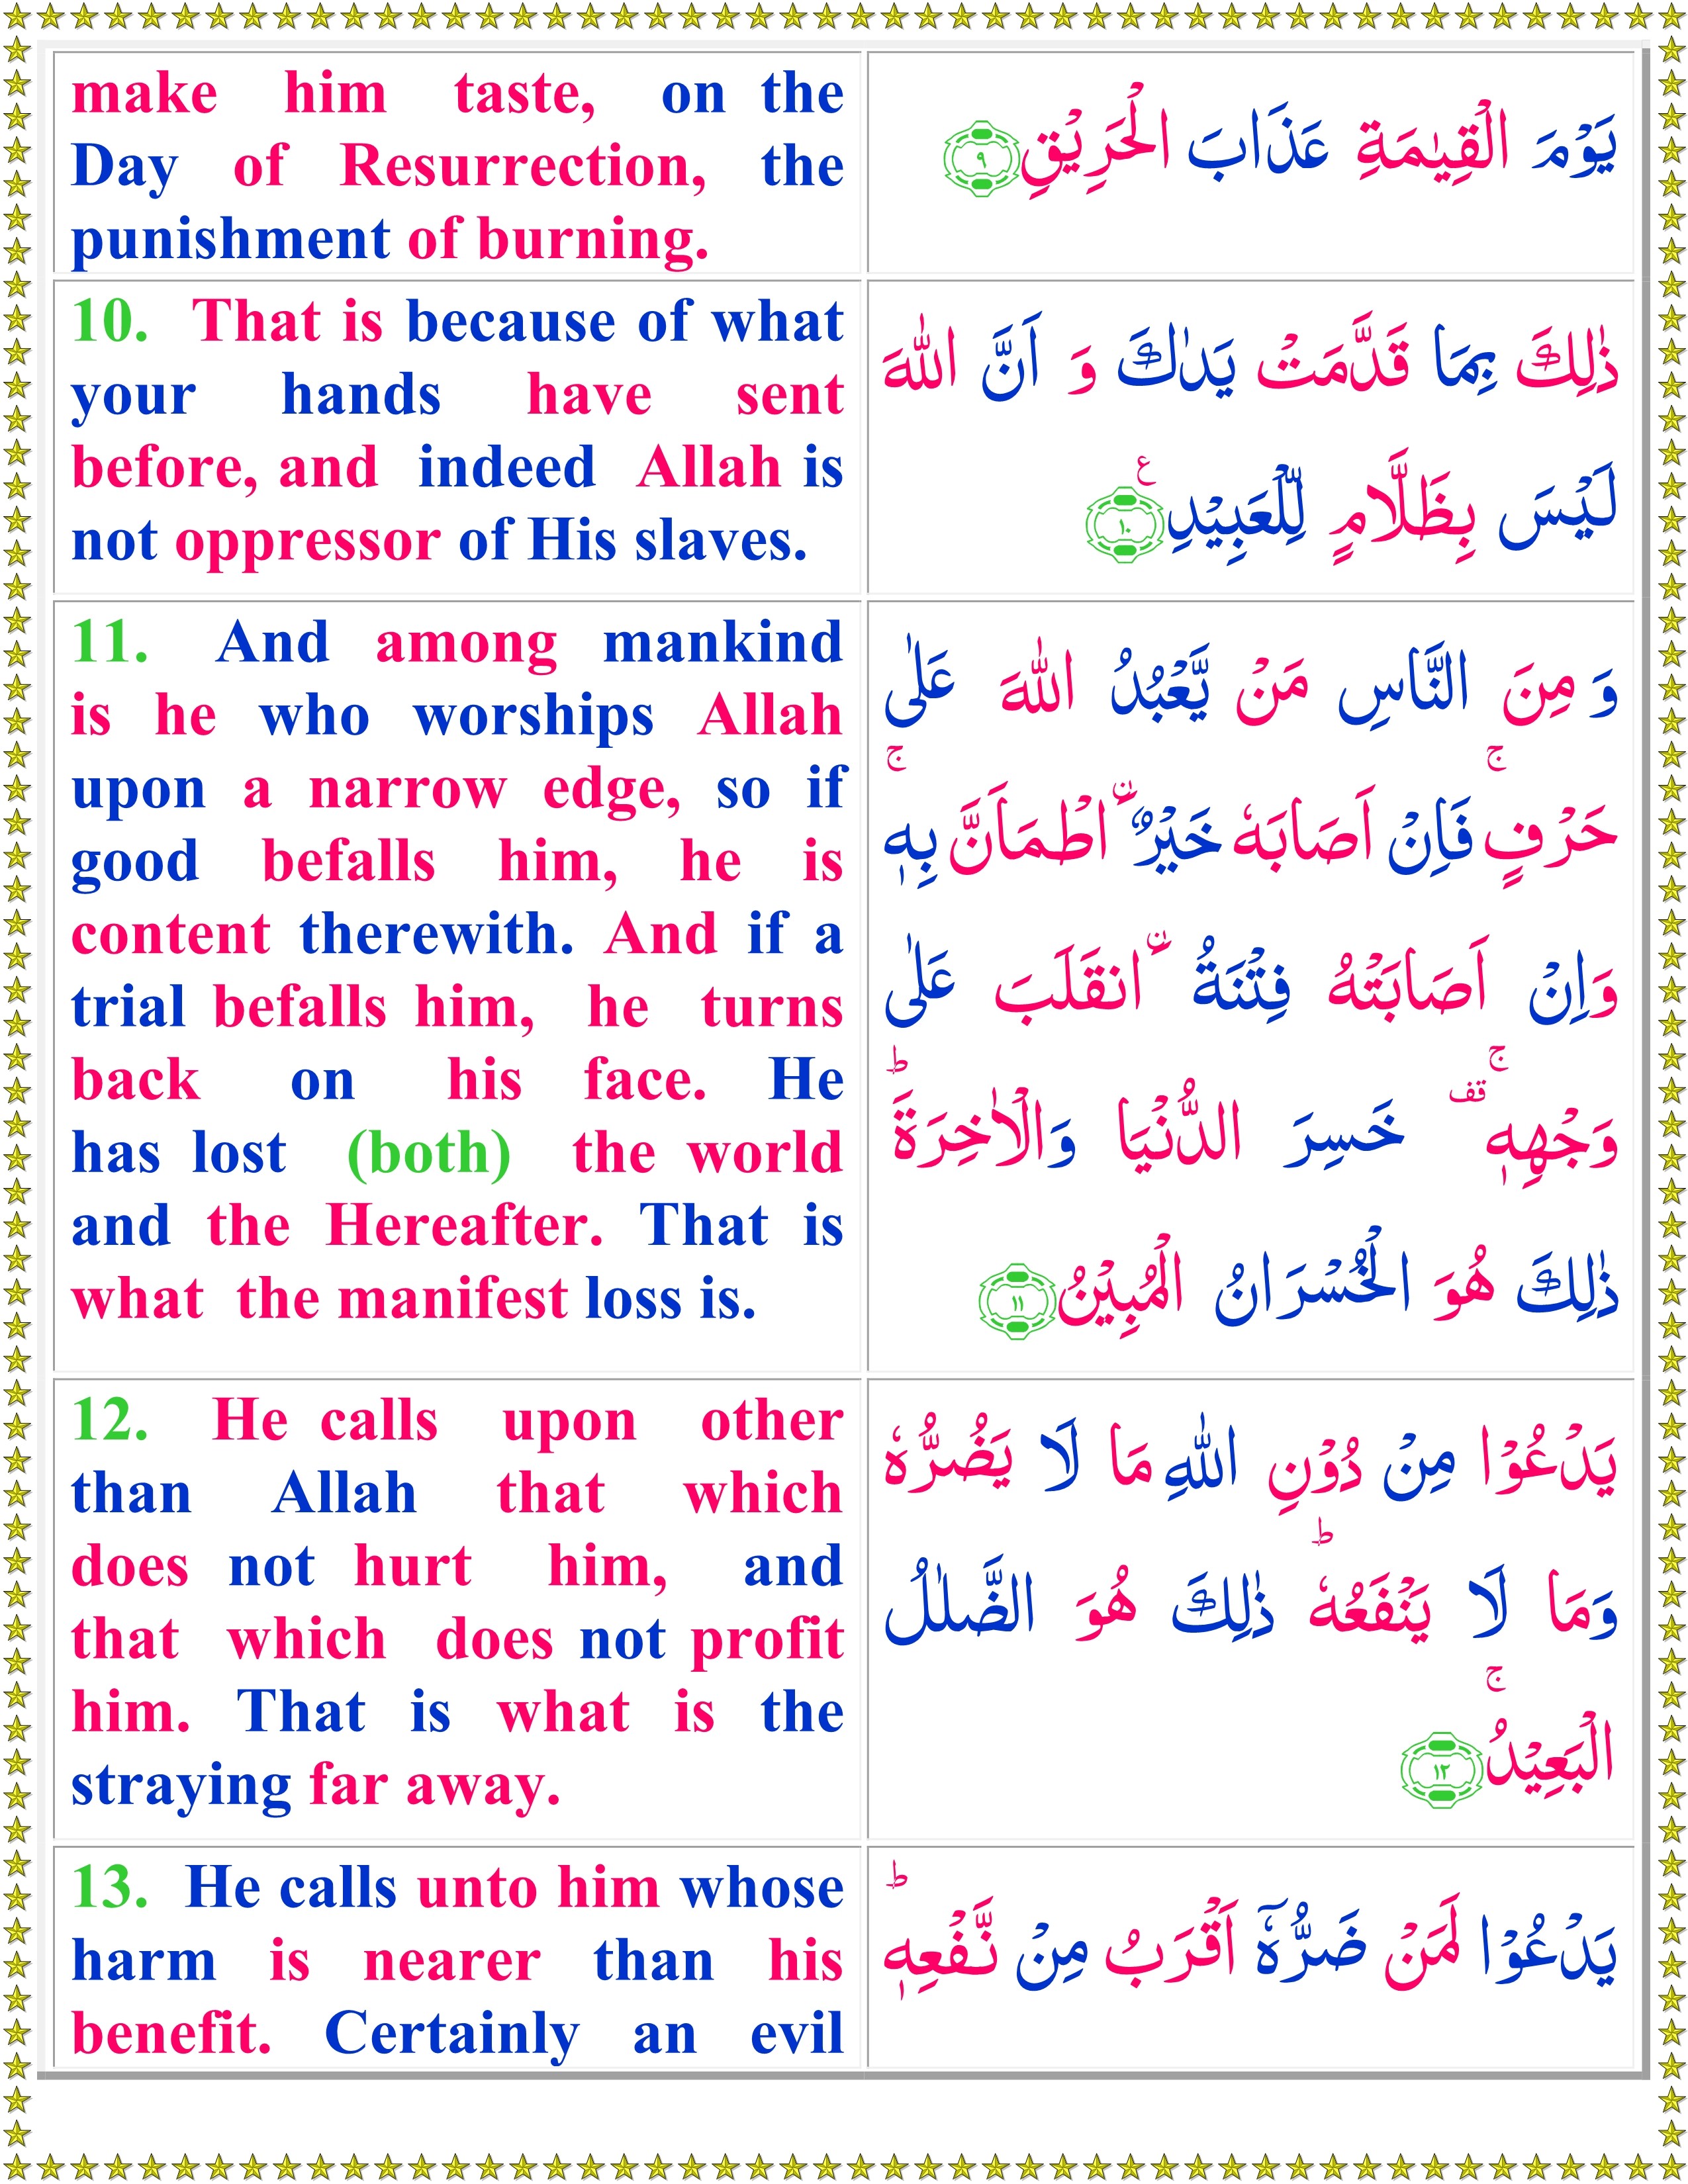 make him taste, on the
Day of Resurrection, the
punishment of burning.
يَوْمَ الْقِيٰمَةِ عَذَابَ الْحَرِيْقِ ۹
10. That is because of what
your hands have sent
before, and indeed Allah is
not oppressor of His slaves.
ذٰلِكَ بِمَا قَدَّمَتْ يَدٰكَ وَ اَنَّ اللّٰهَ
لَيْسَ بِظَلَّامٍ لِّلْعَبِيْدِ ۱۰ ع
11. And among mankind
is he who worships Allah
upon a narrow edge, so if
good befalls him, he is
content therewith. And if a
trial befalls him, he turns
back on his face. He
has lost (both) the world
and the Hereafter. That is
what the manifest loss is.
وَ مِنَ النَّاسِ مَنْ يَّعْبُدُ اللّٰهَ عَلٰى
حَرْفٍ ۚ فَاِنْ اَصَابَهٗ خَيْرُ ۨ اطْمَاَنَّ بِهٖ ۚ
وَاِنْ اَصَابَتْهُ فِتْنَةُ ۨ انقَلَبَ عَلٰى
وَجْهِهٖ ۚ قف خَسِرَ الدُّنْيَا وَالْاٰخِرَةَ ؕ
ذٰلِكَ هُوَ الْخُسْرَانُ الْمُبِيْنُ ۱۱
12. He calls upon other
than Allah that which
does not hurt him, and
that which does not profit
him. That is what is the
straying far away.
يَدْعُوْا مِنْ دُوْنِ اللّٰهِ مَا لَا يَضُرُّهٗ
وَمَا لَا يَنْفَعُهٗ ؕ ذٰلِكَ هُوَ الضَّلٰلُ
الْبَعِيْدُ ۚ ۱۲
13. He calls unto him whose
harm is nearer than his
benefit. Certainly an evil
يَدْعُوْا لَمَنْ ضَرُّهٗۤ اَقْرَبُ مِنْ نَّفْعِهٖ ؕ